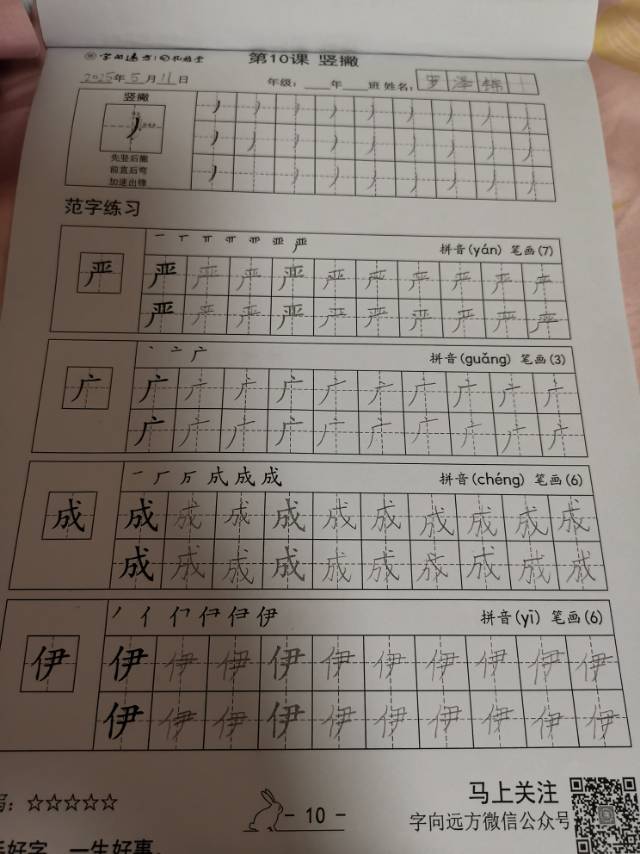 字向远方
第10课 竖撇
2025年5月11日 年级：____年____班 姓名：罗泽
竖撇
先竖后撇
前直后弯
加速出锋
范字练习
拼音(yán) 笔画(7)
严 严 严 严 严 严 严 严 严 严 严
严 严 严 严 严 严 严 严 严 严
拼音(guǎng) 笔画(3)
广 广 广 广 广 广 广 广 广 广 广
广 广 广 广 广 广 广 广 广 广
成 拼音(chéng) 笔画(6)
成 成 成 成 成 成 成 成 成 成 成
成 成 成 成 成 成 成 成 成 成
伊 拼音(yī) 笔画(6)
伊 伊 伊 伊 伊 伊 伊 伊 伊 伊 伊
伊 伊 伊 伊 伊 伊 伊 伊 伊 伊
☆☆☆☆☆
- 10 -
马上关注
字向远方微信公众号
好字，一生好事。